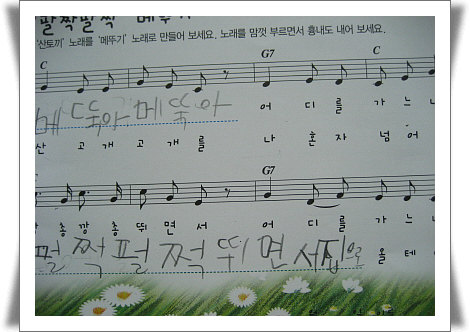 팔짝팔짝 메뚜기
'산토끼' 노래를 '메뚜기' 노래로 만들어 보세요. 노래를 맘껏 부르면서 흉내도 내어 보세요.
C G7 C
메뚝아 메뚝아 어 디 를 가 느 냐
산 고 개 고 개 를 나 혼 자 넘 어
G7
깡 총 깡 총 뛰 면 서 어 디 를 가 느 냐
펄 쩍 펄 쩍 뛰 면 서 집으로 올 테